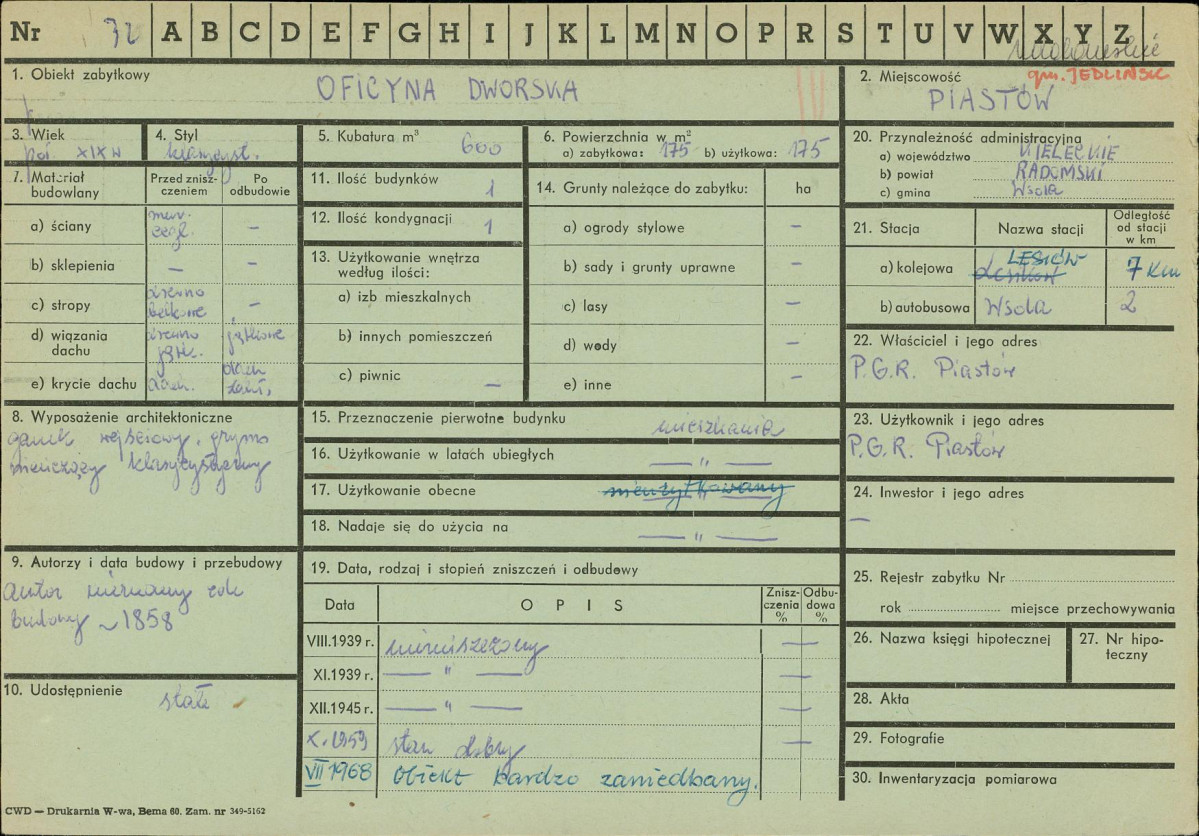 Nr 32 A B C D E F G H I J K L M N O P R S T U V W X Y Z
1. Obiekt zabytkowy
OFICYNA DWORSKA
2. Miejscowość
gm. JEDLIŃSK
PIASTÓW
3. Wiek
poł. XIX w
4. Styl
klasycyst.
5. Kubatura m³ 600
6. Powierzchnia w m²
a) zabytkowa: 175 b) użytkowa: 175
7. Materiał budowlany
Przed zniszczeniem
Po odbudowie
a) ściany mur. cegl. —
b) sklepienia — —
c) stropy drewno belkowe —
d) wiązania dachu drewno jętk. jętkowe
e) krycie dachu dach.
8. Wyposażenie architektoniczne
ganek wejściowy, gzyms
wieńczący klasycystyczny
9. Autorzy i data budowy i przebudowy
autor nieznany rok
budowy ~ 1858
10. Udostępnienie
stałe
11. Ilość budynków 1
12. Ilość kondygnacji 1
13. Użytkowanie wnętrza według ilości:
a) izb mieszkalnych
b) innych pomieszczeń
c) piwnic —
14. Grunty należące do zabytku: ha
a) ogrody stylowe —
b) sady i grunty uprawne —
c) lasy —
d) wody —
e) inne —
15. Przeznaczenie pierwotne budynku mieszkania
16. Użytkowanie w latach ubiegłych — " —
17. Użytkowanie obecne nieużytkowany
18. Nadaje się do użycia na — " —
19. Data, rodzaj i stopień zniszczeń i odbudowy
Data O P I S Zniszczenia % Odbudowa %
VIII.1939 r. niezniszczony —
XI.1939 r. — " — —
XII.1945 r. — " — —
X.1959 stan dobry —
VII 1968 Obiekt bardzo zaniedbany.
20. Przynależność administracyjna
a) województwo KIELECKIE
b) powiat RADOMSKI
c) gmina Wsola
21. Stacja Nazwa stacji Odległość od stacji w km
a) kolejowa LESIÓW 7 km
b) autobusowa Wsola 2
22. Właściciel i jego adres
P.G.R. Piastów
23. Użytkownik i jego adres
P.G.R. Piastów
24. Inwestor i jego adres
—
25. Rejestr zabytku Nr
rok miejsce przechowywania
26. Nazwa księgi hipotecznej
27. Nr hipoteczny
28. Akta
29. Fotografie
30. Inwentaryzacja pomiarowa
CWD — Drukarnia W-wa, Bema 60. Zam. nr 349-5162